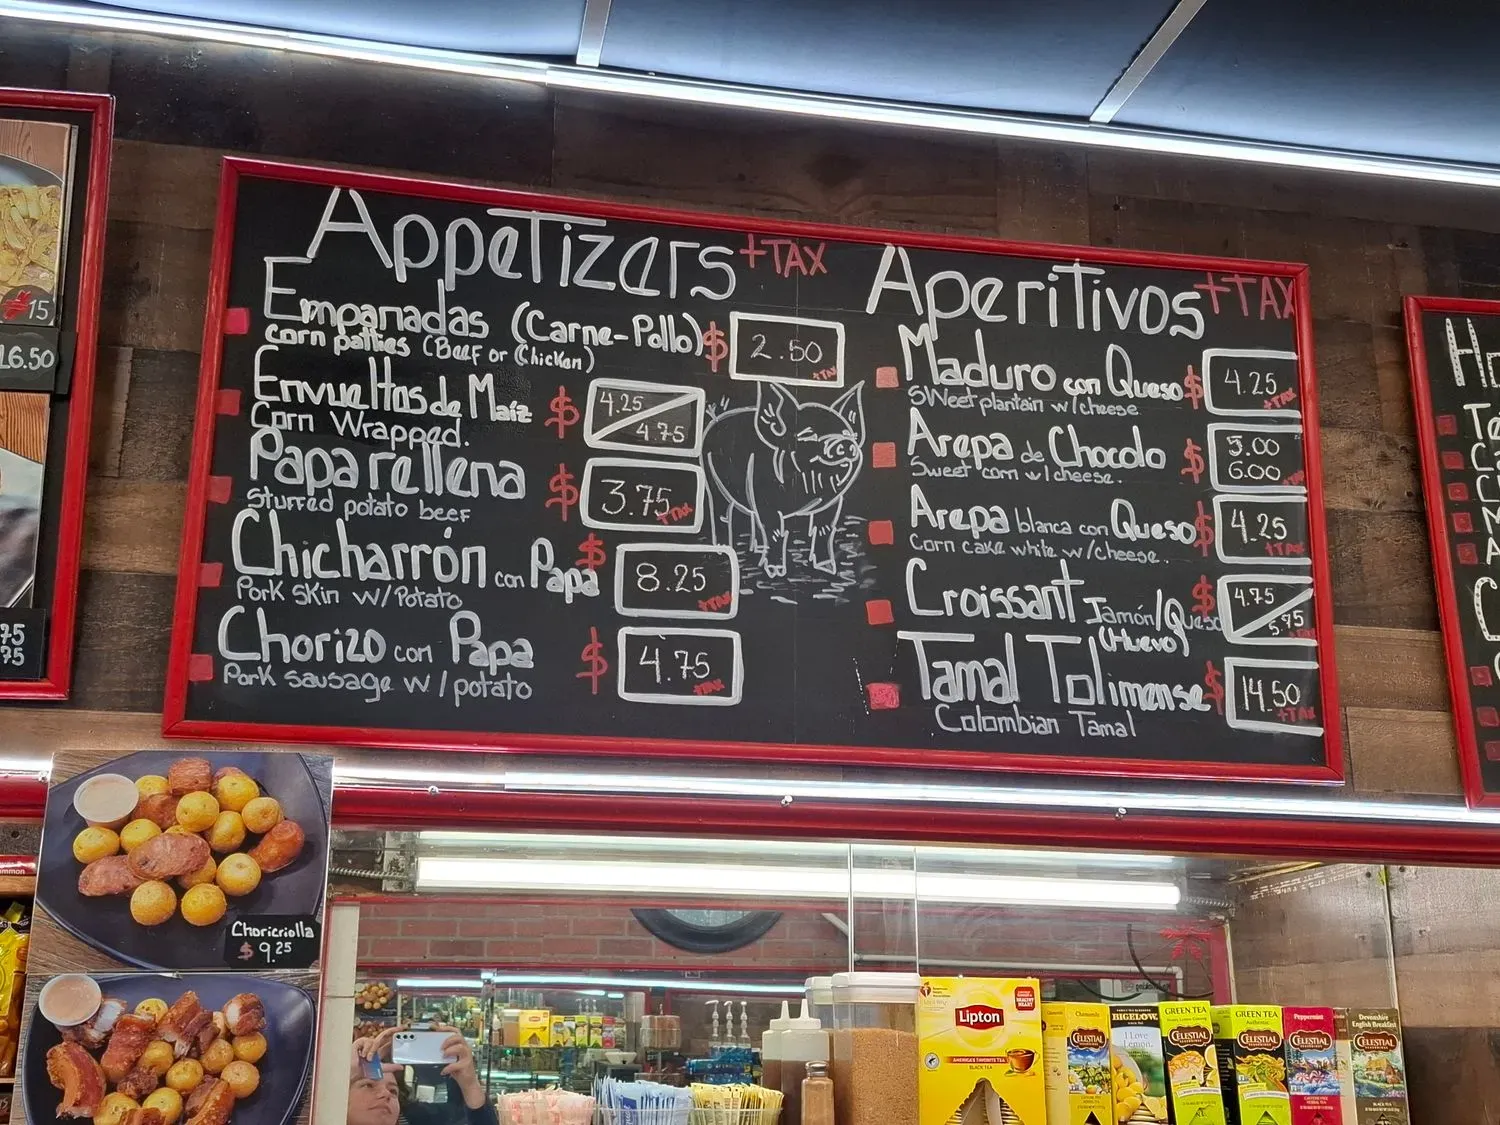 Appetizers +TAX
Empanadas (Carne-Pollo) $ 2.50 +TAX
corn patties (Beef or Chicken)
Envueltos de Maíz $ 4.25 4.75
Corn Wrapped.
Papa rellena $ 3.75 +TAX
Stuffed potato beef
Chicharrón con Papa $ 8.25 +TAX
Pork Skin w/Potato
Chorizo con Papa $ 4.75 +TAX
Pork sausage w/potato
Aperitivos +TAX
Maduro con Queso $ 4.25 +TAX
Sweet plantain w/cheese
Arepa de Chocolo $ 5.00 6.00
Sweet corn w/cheese.
Arepa blanca con Queso $ 4.25 +TAX
Corn cake white w/cheese.
Croissant Jamón/Queso $ 4.75 5.75
(Huevo)
Tamal Tolimense $ 14.50 +TAX
Colombian Tamal
15
16.50
75
75
Choricriolla
$ 9.25
Lipton
AMERICA'S FAVORITE TEA
BLACK TEA
Chamomile
CELESTIAL
BIGELOW
I Love
Lemon
GREEN TEA
CELESTIAL
GREEN TEA
Authentic
CELESTIAL
Peppermint
CELESTIAL
Devonshire
English Breakfast
CELESTIAL
BLACK TEA
Lipton